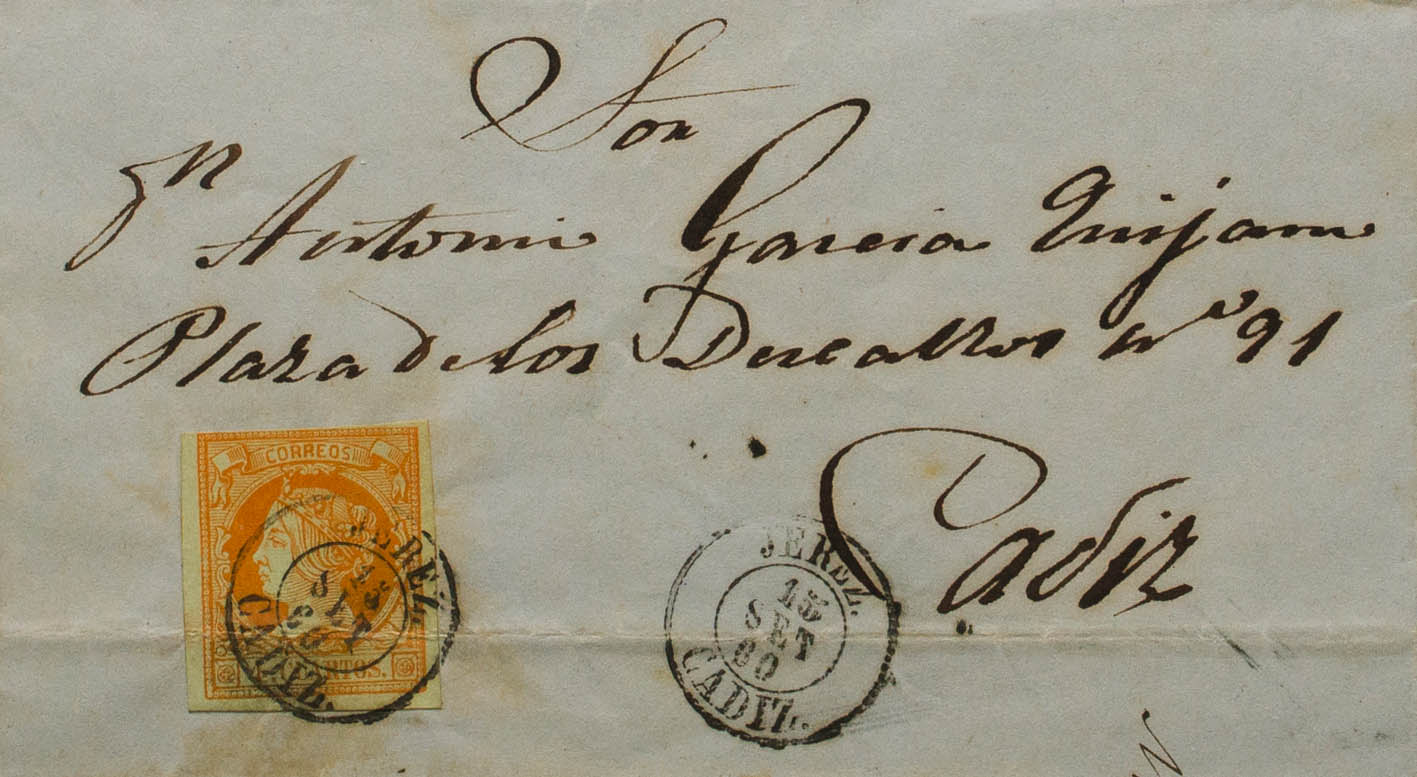 Sor
Dn Antonio Garcia Quijano
Plaza de los Descalzos nº 91
Cadiz
CORREOS
JEREZ.
15
SET
60
CADIZ.
JEREZ.
15
SET
60
CADIZ.